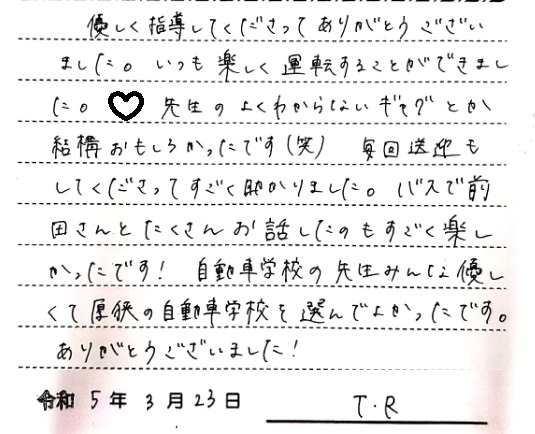 優しく指導してくださってありがとうござい
ました。いつも楽しく運転することができまし
た。♡先生のよくわからないギャグとか
結構おもしろかったです(笑) 毎回送迎も
してくださってすごく助かりました。バスで前
田さんとたくさんお話したのもすごく楽し
かったです！自動車学校の先生みんな優し
くて厚狭の自動車学校を選んでよかったです。
ありがとうございました！
令和 5年 3月23日 T.R